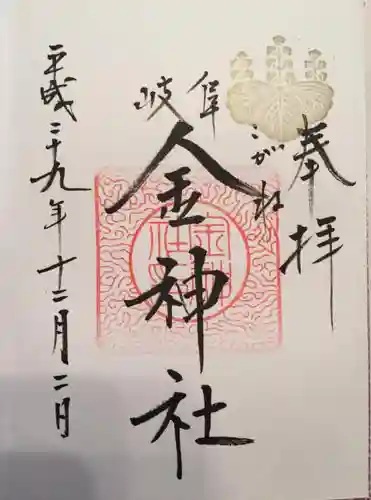 奉拝
こがね
岐阜
金神社
平成二十九年十二月二日